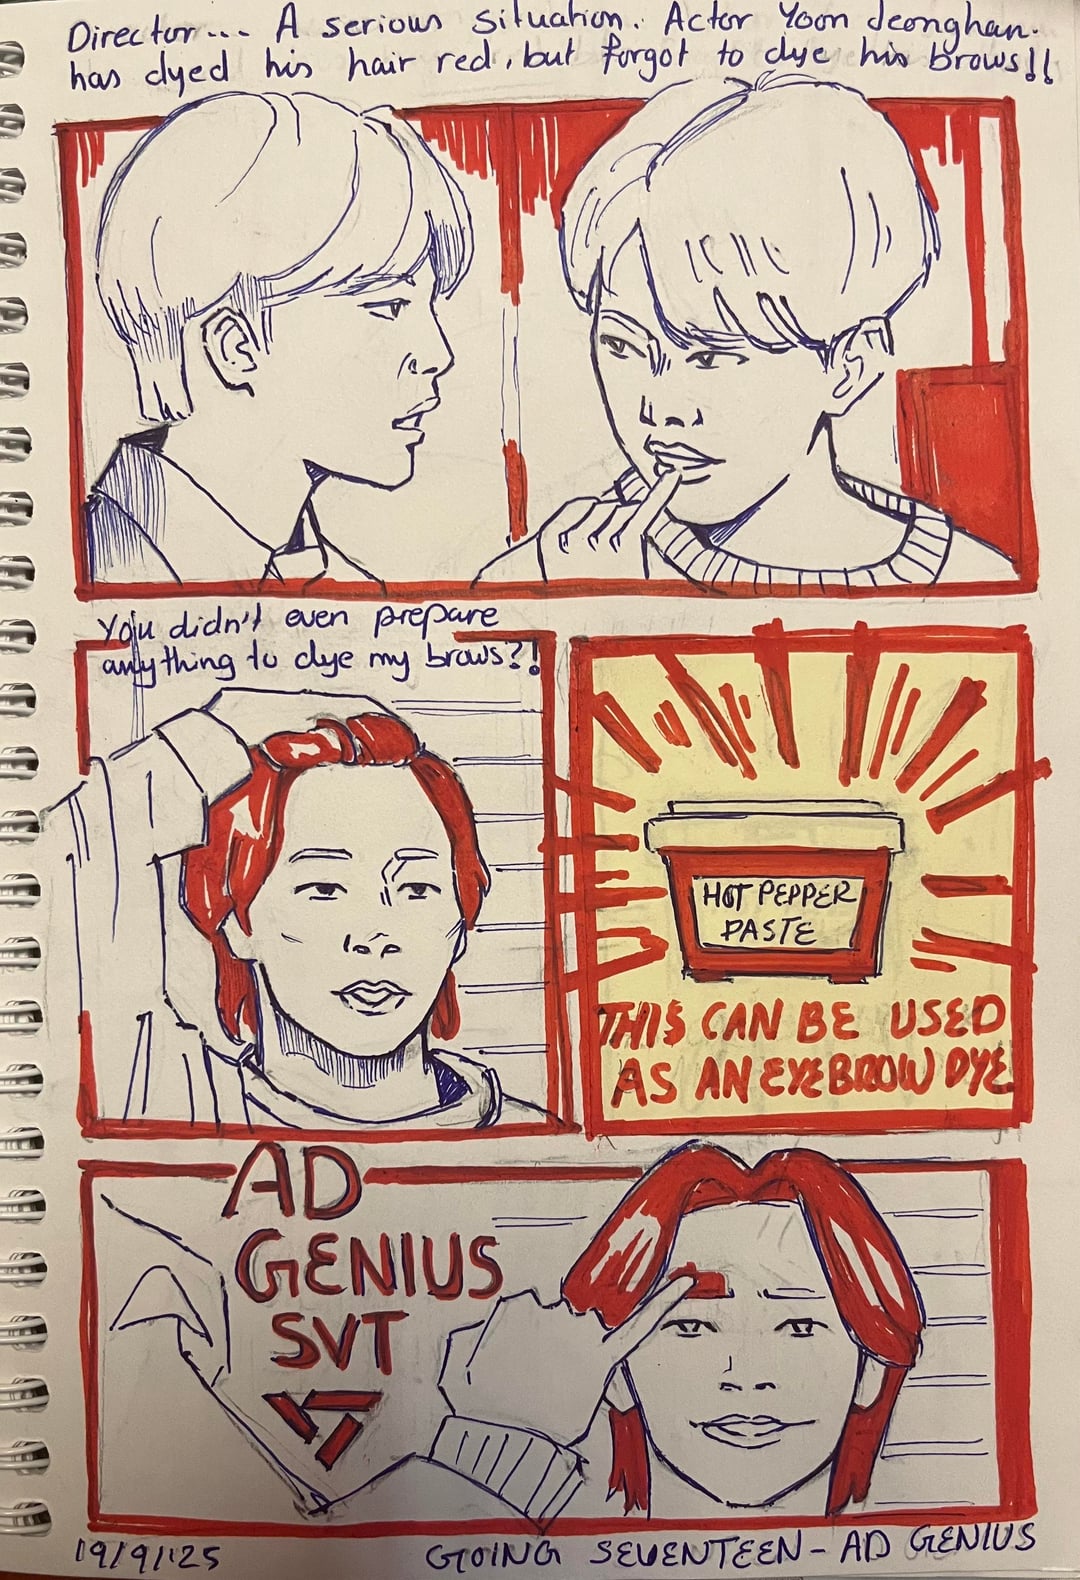 Director... A serious situation. Actor Yoon Jeonghan.
has dyed his hair red, but forgot to dye his brows!!
You didn't even prepare
anything to dye my brows?!
HOT PEPPER
PASTE
THIS CAN BE USED
AS AN EYEBROW DYE
AD
GENIUS
SVT
19/9/'25
GOING SEVENTEEN - AD GENIUS